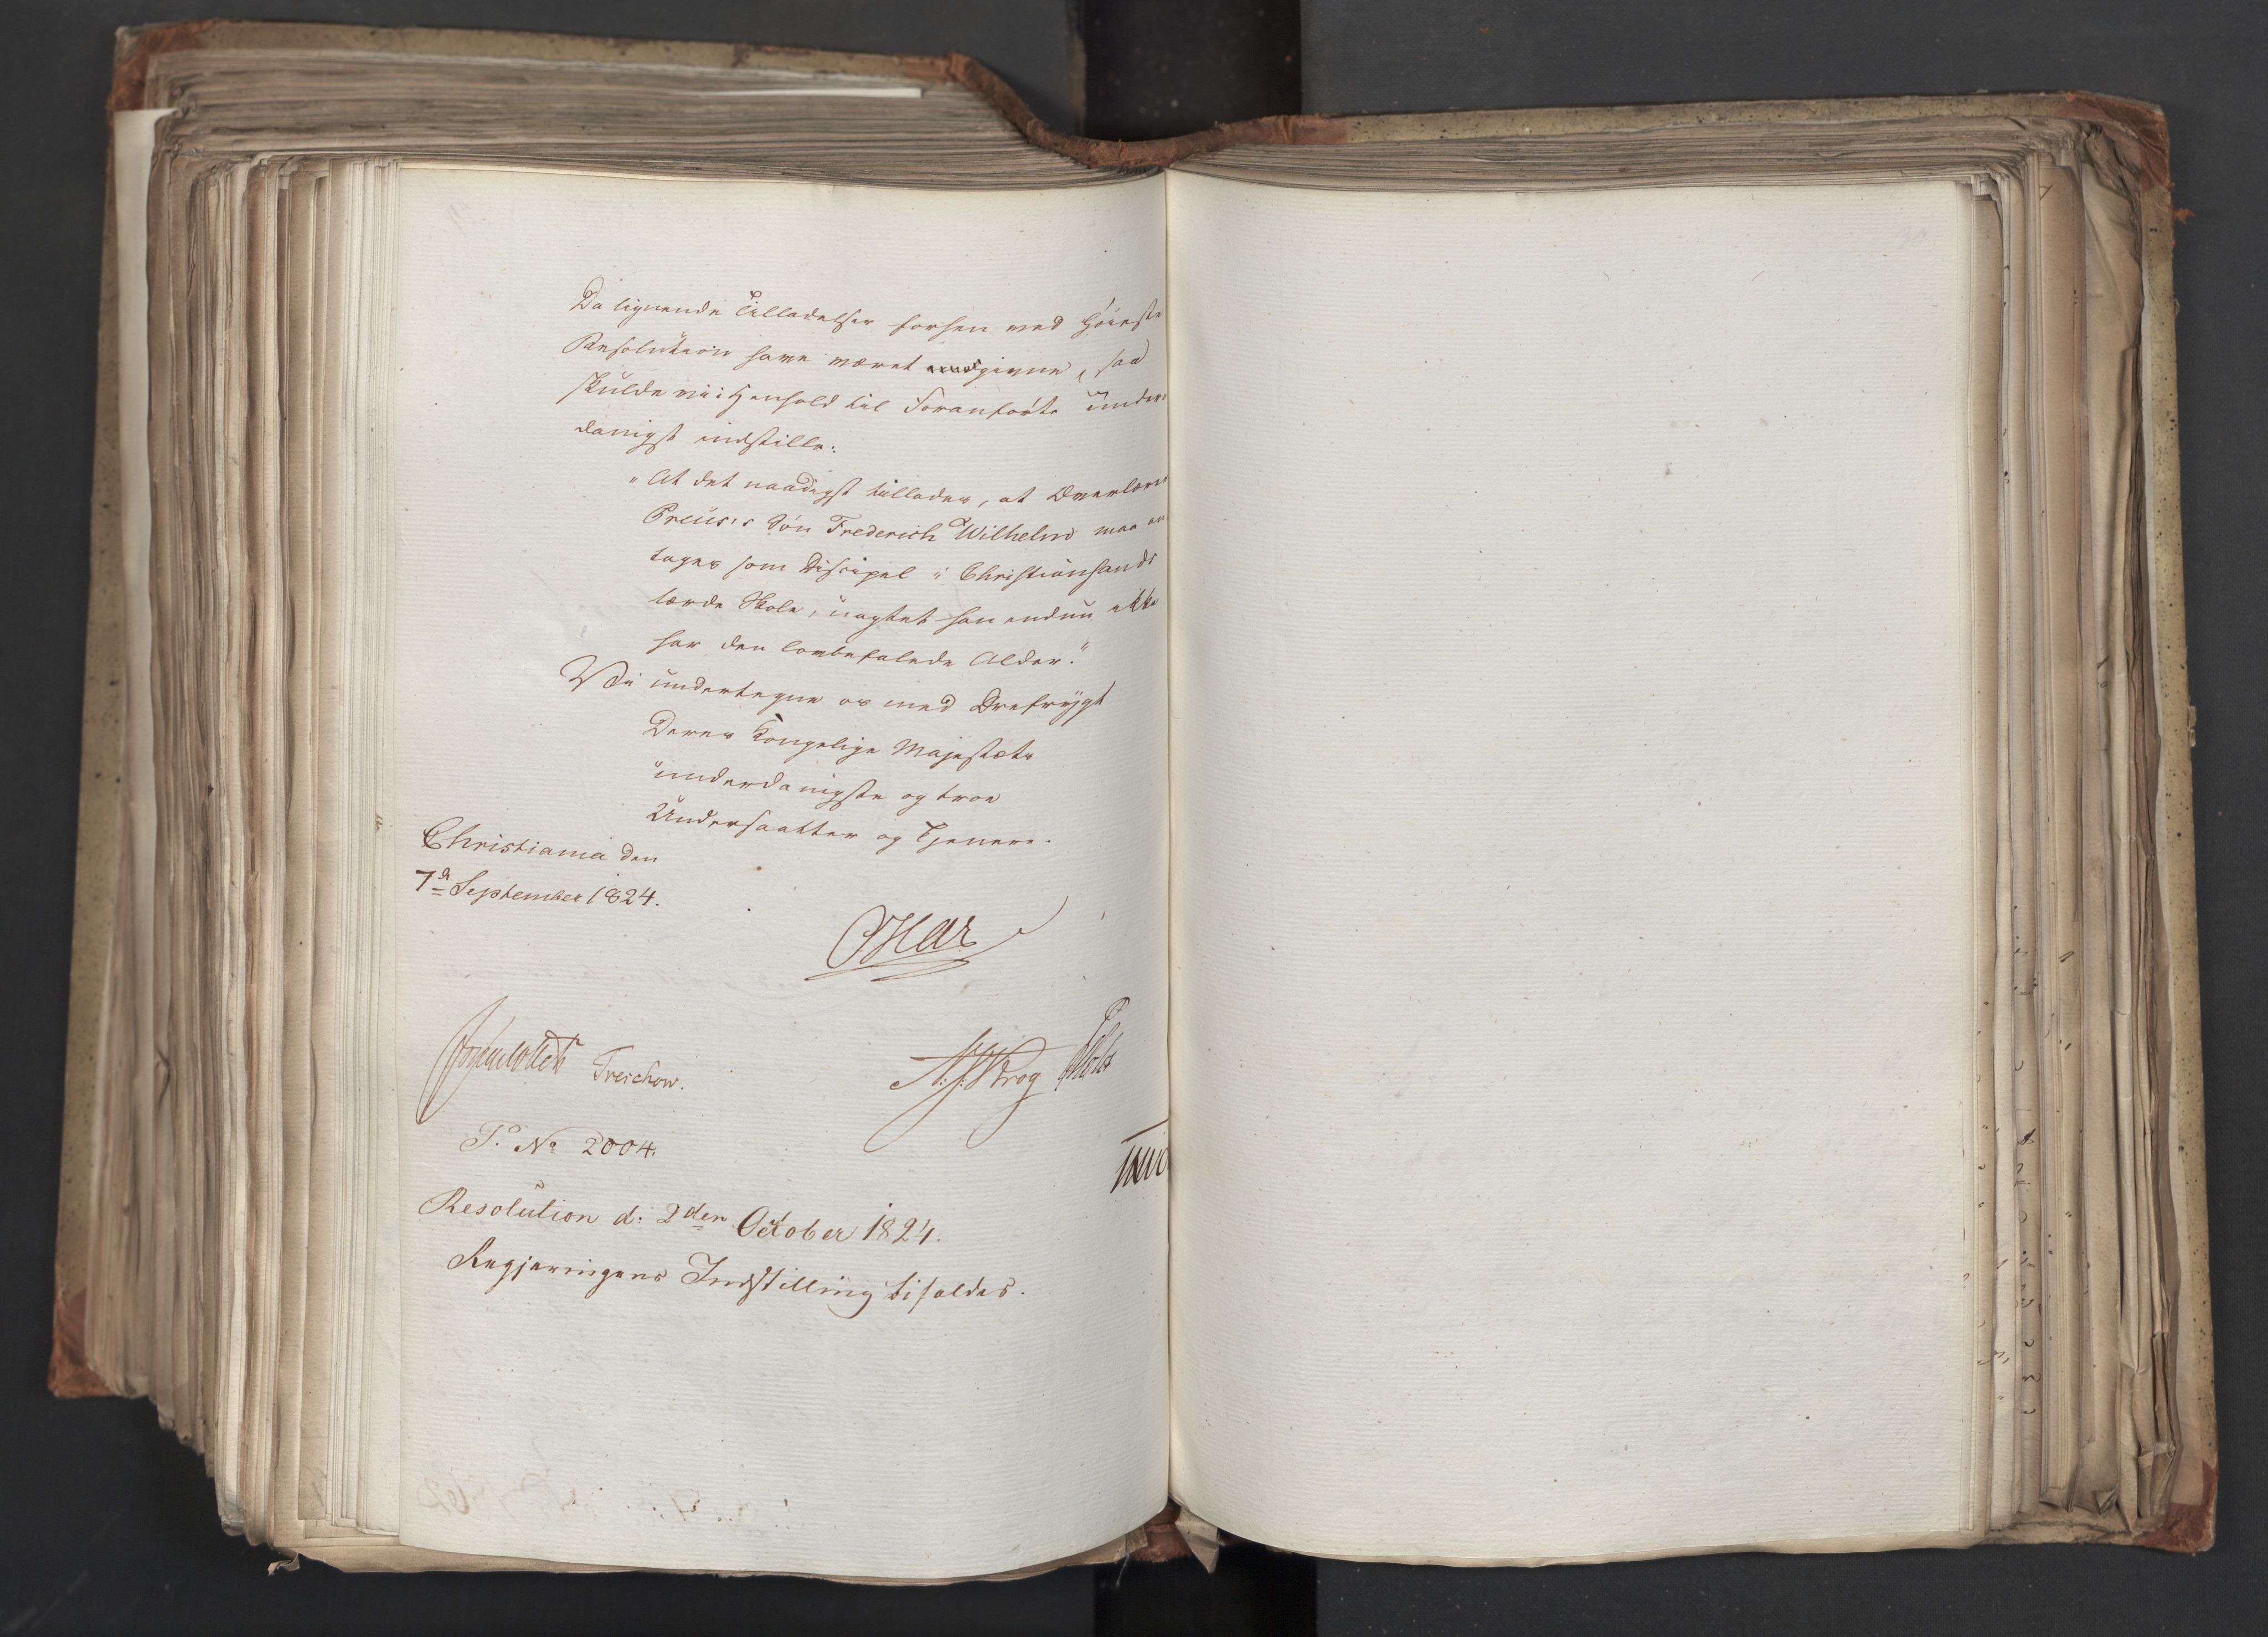 Da lignende Tilladelser forhen ved Høieste
Resolution have været givne, saa
skulde vi i Henhold til Foranførte under-
danigst indstille:
"At det naadigst tillades, at Overlærer
Preus's Søn Frederich Wilhelm maa an-
tages som Discipel i Christiansands
lærde Skole, uagtet han endnu ikke
har den lovbefalede Alder."
Vi undertegne os med Ærefrygt
Deres Kongelige Majestæts
underdanigste og troe
Undersaatter og Tjenere.
Christiania den
7d September 1824.
Oscar
Treschow.
Krog Holst
P. No 2004.
Resolution d: 2den October 1824.
Regjeringens Indstilling bifaldes.